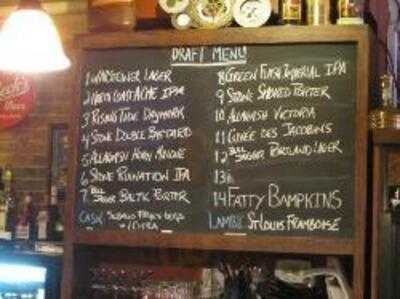 DRAFT MENU
1 WARSTEINER LAGER
2 NORTH COAST ACME IPA
3 RISING TIDE DAYMARK
4 STONE DOUBLE BASTARD
5 ALLAGASH HUGH MALONE
6 STONE RUINATION IPA
7 BULL JAGGER BALTIC PORTER
CASK
8 GREEN FLASH IMPERIAL IPA
9 STONE SMOKED PORTER
10 ALLAGASH VICTORIA
11 CUVÉE DES JACOBINS
12 BULL JAGGER PORTLAND LAGER
13
14 FATTY BAMPKINS
LAMBIC ST LOUIS FRAMBOISE